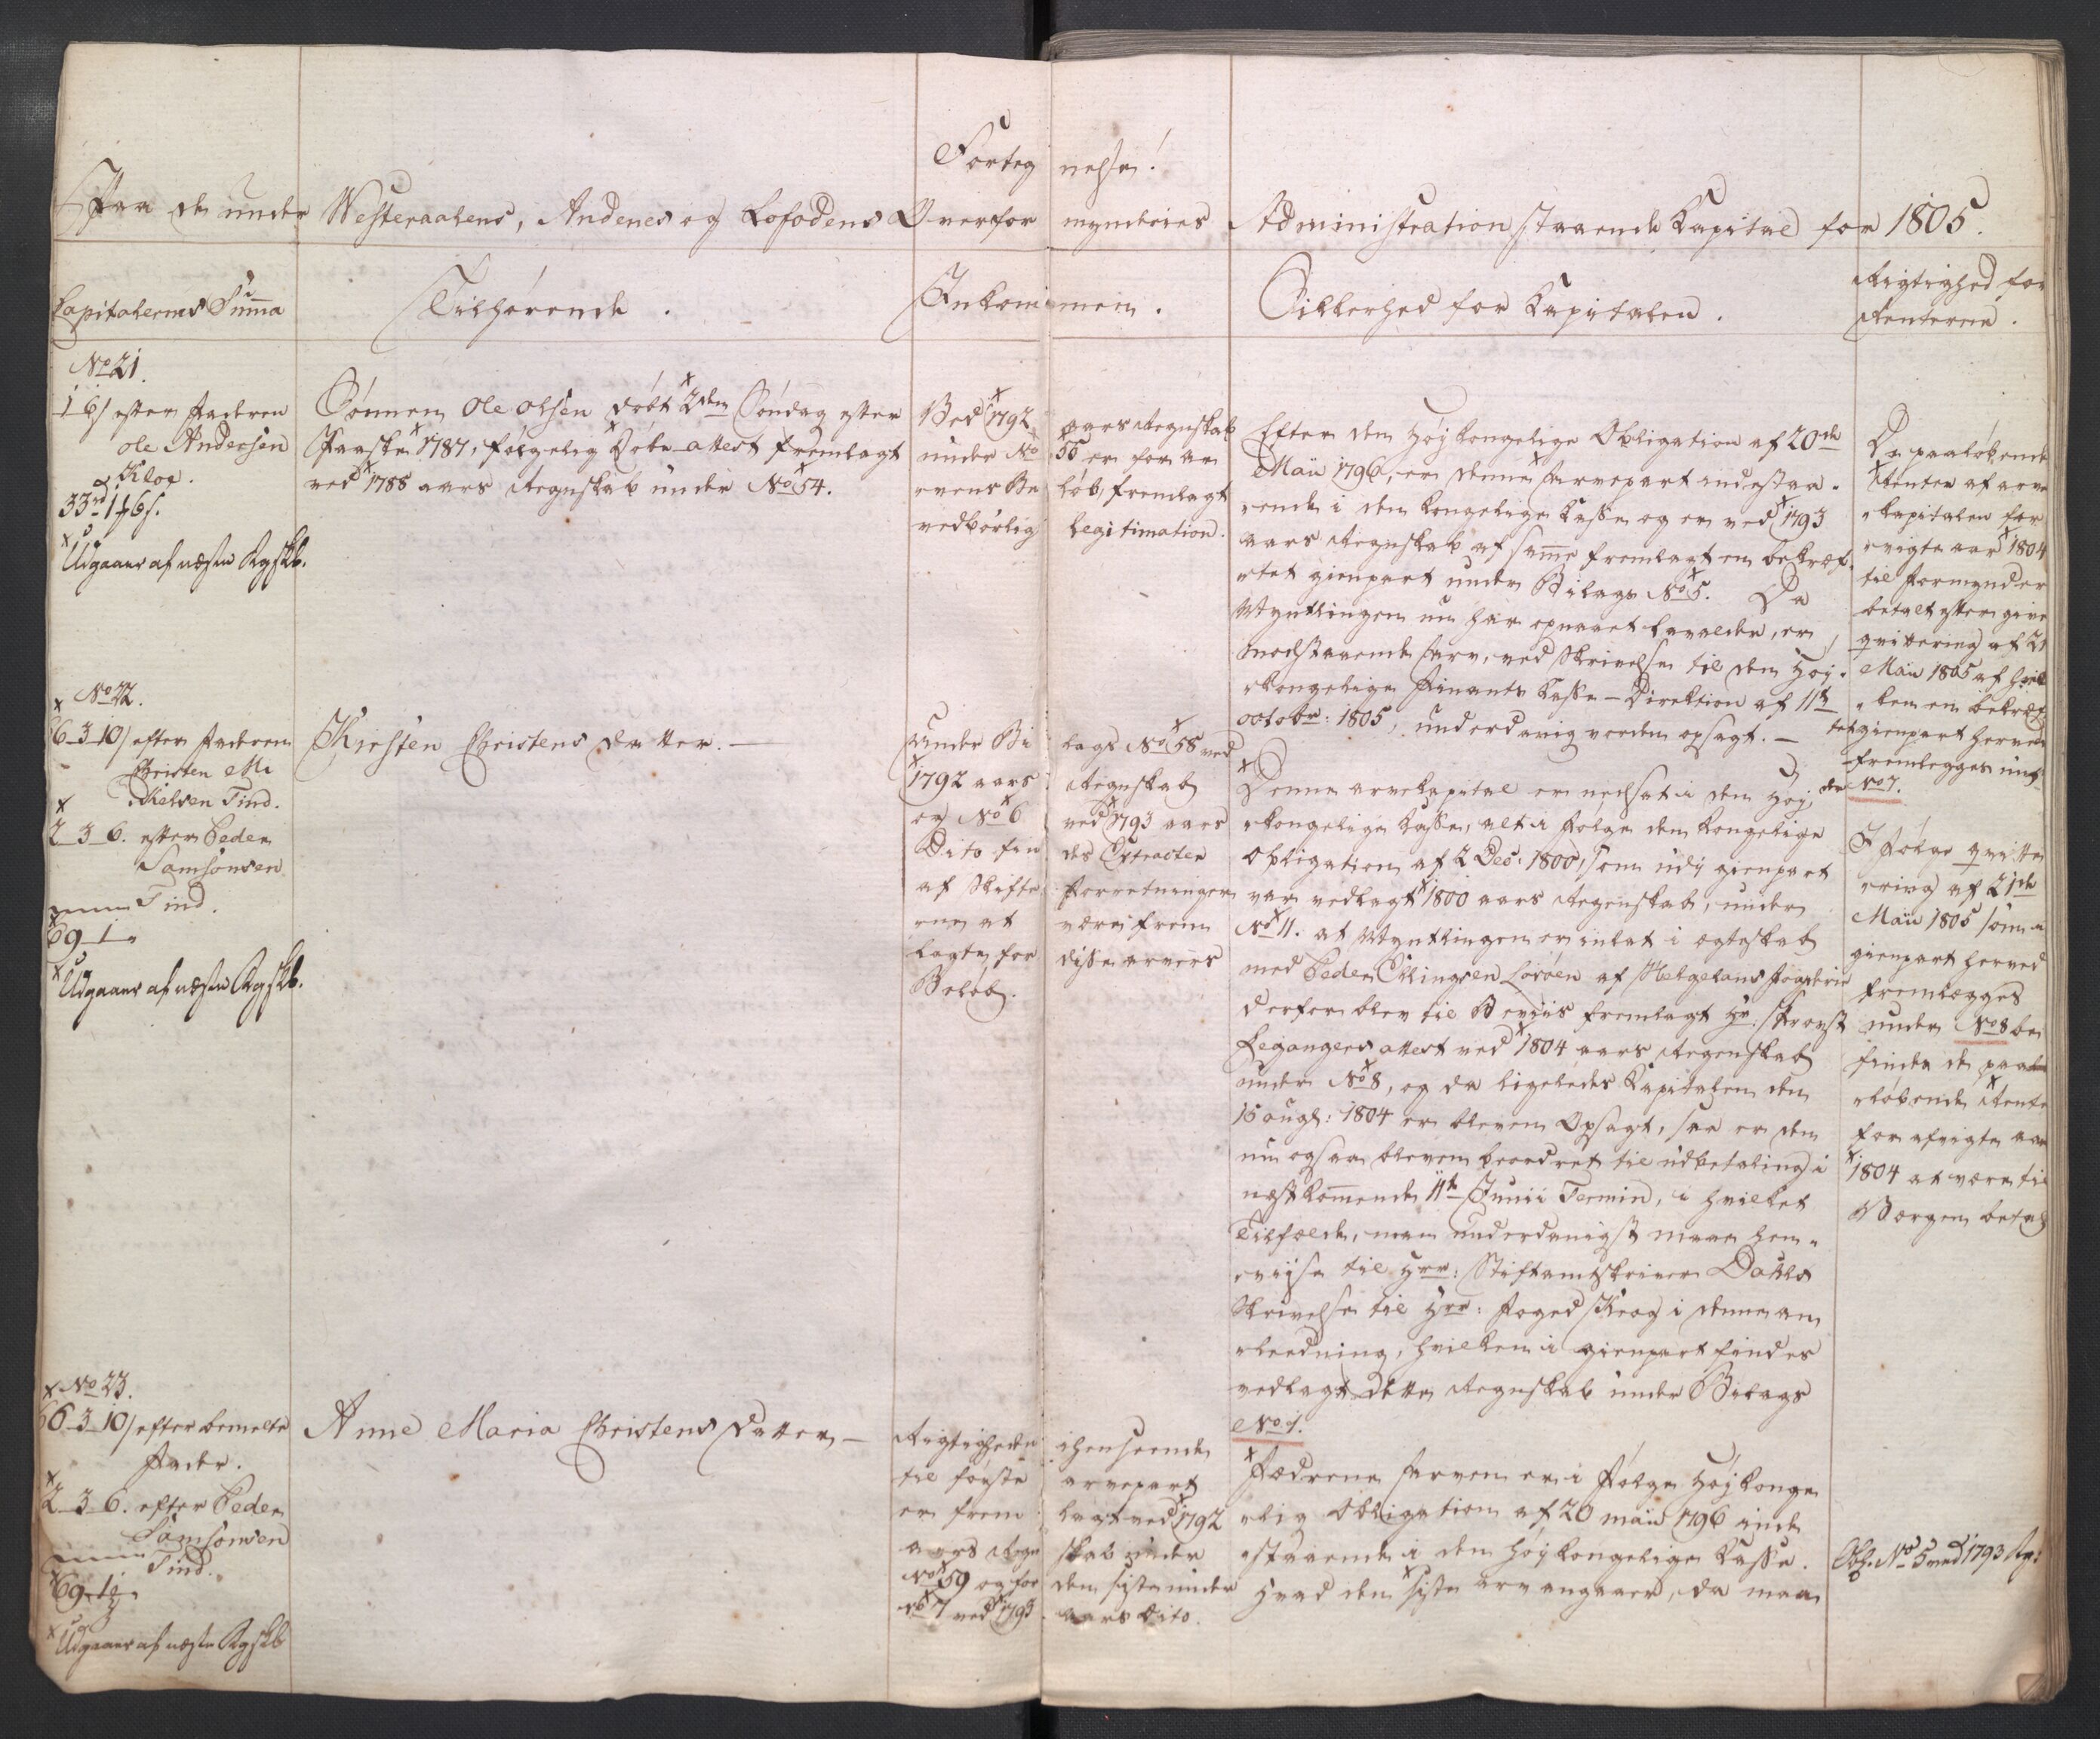 Forteg nelse!
Paa de under Westeraalens, Andenes og Lofodens Overfor mynderies Administration staaende Kapital for 1805.
Capitalernes Summa
Tilhørende.
Inkom men.
Sikkerhed for Kapitalen.
Rigtighed for
Renterne.
No 21.
efter Faderen
Ole Andersen
Klog.
33rd 1 # 6 s.
Udgaaer af næste Rgskb.
Sønnen Ole Olsen døbt 2den Søndag efter
Paaske 1787, følgelig Døbe-attest fremlagt
ved 1788 aars Regnskab under No 54.
Ved 1792
under No
evens Be
vedbørlig
aars Regnskab
55 er for ar
løb, fremlagt
Legitimation.
Efter den Højkongelige Obligation af 20de
Maii 1796, er denne Arvepart indestaa-
ende i den kongelige Kasse og er ved 1793
aars Regnskab af samme fremlagt en bekræf-
tet gienpart under Bilags No 5. Da
Myntlingen nu har opnaaet Lavalder, er
modstaaende Arv, ved Skrivelse til den Høj-
kongelige Finants Kasse-Direktion af 11te
octobr: 1805, underdanig vorden opsagt. —
De paaløbende
Renter af arve
kapitalen for
evigte aar 1804
til Formynder
betalt efter give
qvittering af 21
Maii 1805 af hvil
ken en bekræf
tet gienpart herved
fremlegges un
der No 7.
No 22.
66-3-10/ efter Faderen
Christen Mi
kelsen Tind.
2-3-6. efter Peder
Samsonsen
Tind.
69-1-
Udgaaer af næste Rgskb.
Kirsten Christens Datter. —
Under Bi
1792 aars
og No 6
Dito fin
af Skifte
erne at
lagte for
Beløb.
lags No 58 ved
Regnskab
ved 1793 aars
des Extracter
Forretningen
være frem
disse arvers
Denne arvekapital er nedsat i den Høj
kongelige Kasse, alt i Følge den kongelige
Obligation af 2 Dec: 1800, som udi gienpart
var vedlagt 1800 aars Regenskab, under
No 11. at Myntlingen er indlat i egteskab
med Peder Ellingsen Lorøen af Helgelans Fogderie
derfor blev til Beviis fremlagt Hr. Provst
Leganger attest ved 1804 aars Regenskab
under No 8, og da ligeledes Kapitalen den
15 aug: 1804 er bleven Opsagt, saa er den
nu ogsaa bleven beordret til udbetaling i
nestkommende 11te Junii Termin, i hvilket
Tilfælde, man underdanigst maa hen-
vise til Hrr: Stiftamtskriver Dahls
Skrivelse til Hrr: Foged Krog i denne an
ledning, hvilken i gienpart findes
vedlagt dette Regnskab under Bilags
No 1.
I Følge qvitte
ring af 21de
Maii 1805 som i
gienpart herved
fremlegges
under No 8 be
finder de paa
løbende Rente
for afvigte aar
1804 at være til
Værgen betalt
No 23.
66-3-10/ efter bemelte
Fader.
2-3-6. efter Peder
Samsonsen
Tind.
69-1-
Udgaaer af næste Rgskb
Anne Maria Christens Datter —
Rigtigheden
til første
er frem
aars Regn
No 59 og for
No 7 ved 1793
ihenseende
arvepart
lagt ved 1792
skab under
den siste under
aars Dito.
Fædrene Arven er i Følge Højkonge
lig Obligation af 20 maii 1796 inde
staaende i den højkongelige Kasse.
Hvad den siste arv angaaer, da maa
Obl. No 5 ved 1793 Rg: